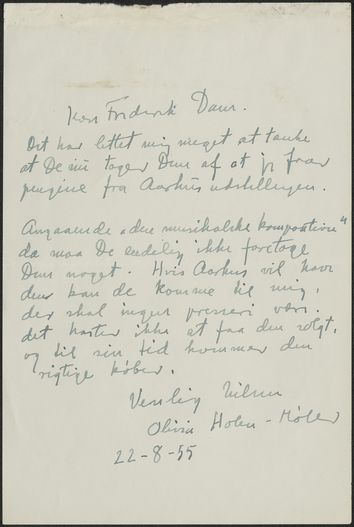 Kære Frederik Dam.
Det har lettet mig meget at tænke
at De nu tager Dem af at jeg faar
pengene fra Aarhus udstillingen.
Angaaende "den musikalske komposition"
da maa De endelig ikke foretage
Dem noget. Hvis Aarhus vil have
den kan de komme til mig,
der skal ingen presseri være.
det haster ikke at faa den solgt,
og til sin tid kommer den
rigtige køber.
Venlig hilsen
Olivia Holm-Møller
22-8-55